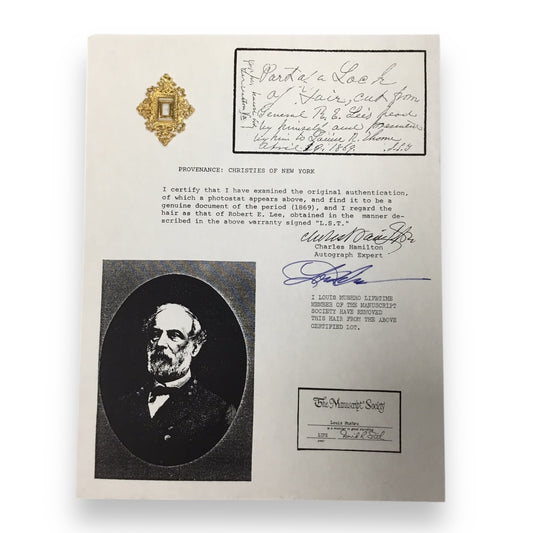 Part of a Lock
of Hair, cut from
General R. E. Lee's head
by himself and presented
by him to
April 1869. L.S.T
PROVENANCE: CHRISTIES OF NEW YORK
I certify that I have examined the original authentication,
of which a photostat appears above, and find it to be a
genuine document of the period (1869), and I regard the
hair as that of Robert E. Lee, obtained in the manner de-
scribed in the above warranty signed "L.S.T."
Charles Hamilton
Autograph Expert
I LOUIS MUSHRO LIFETIME
MEMBER OF THE MANUSCRIPT
SOCIETY HAVE REMOVED
THIS HAIR FROM THE ABOVE
CERTIFIED LOT.
The Manuscript Society
Louis Mushro
is a member in good standing
LIFE